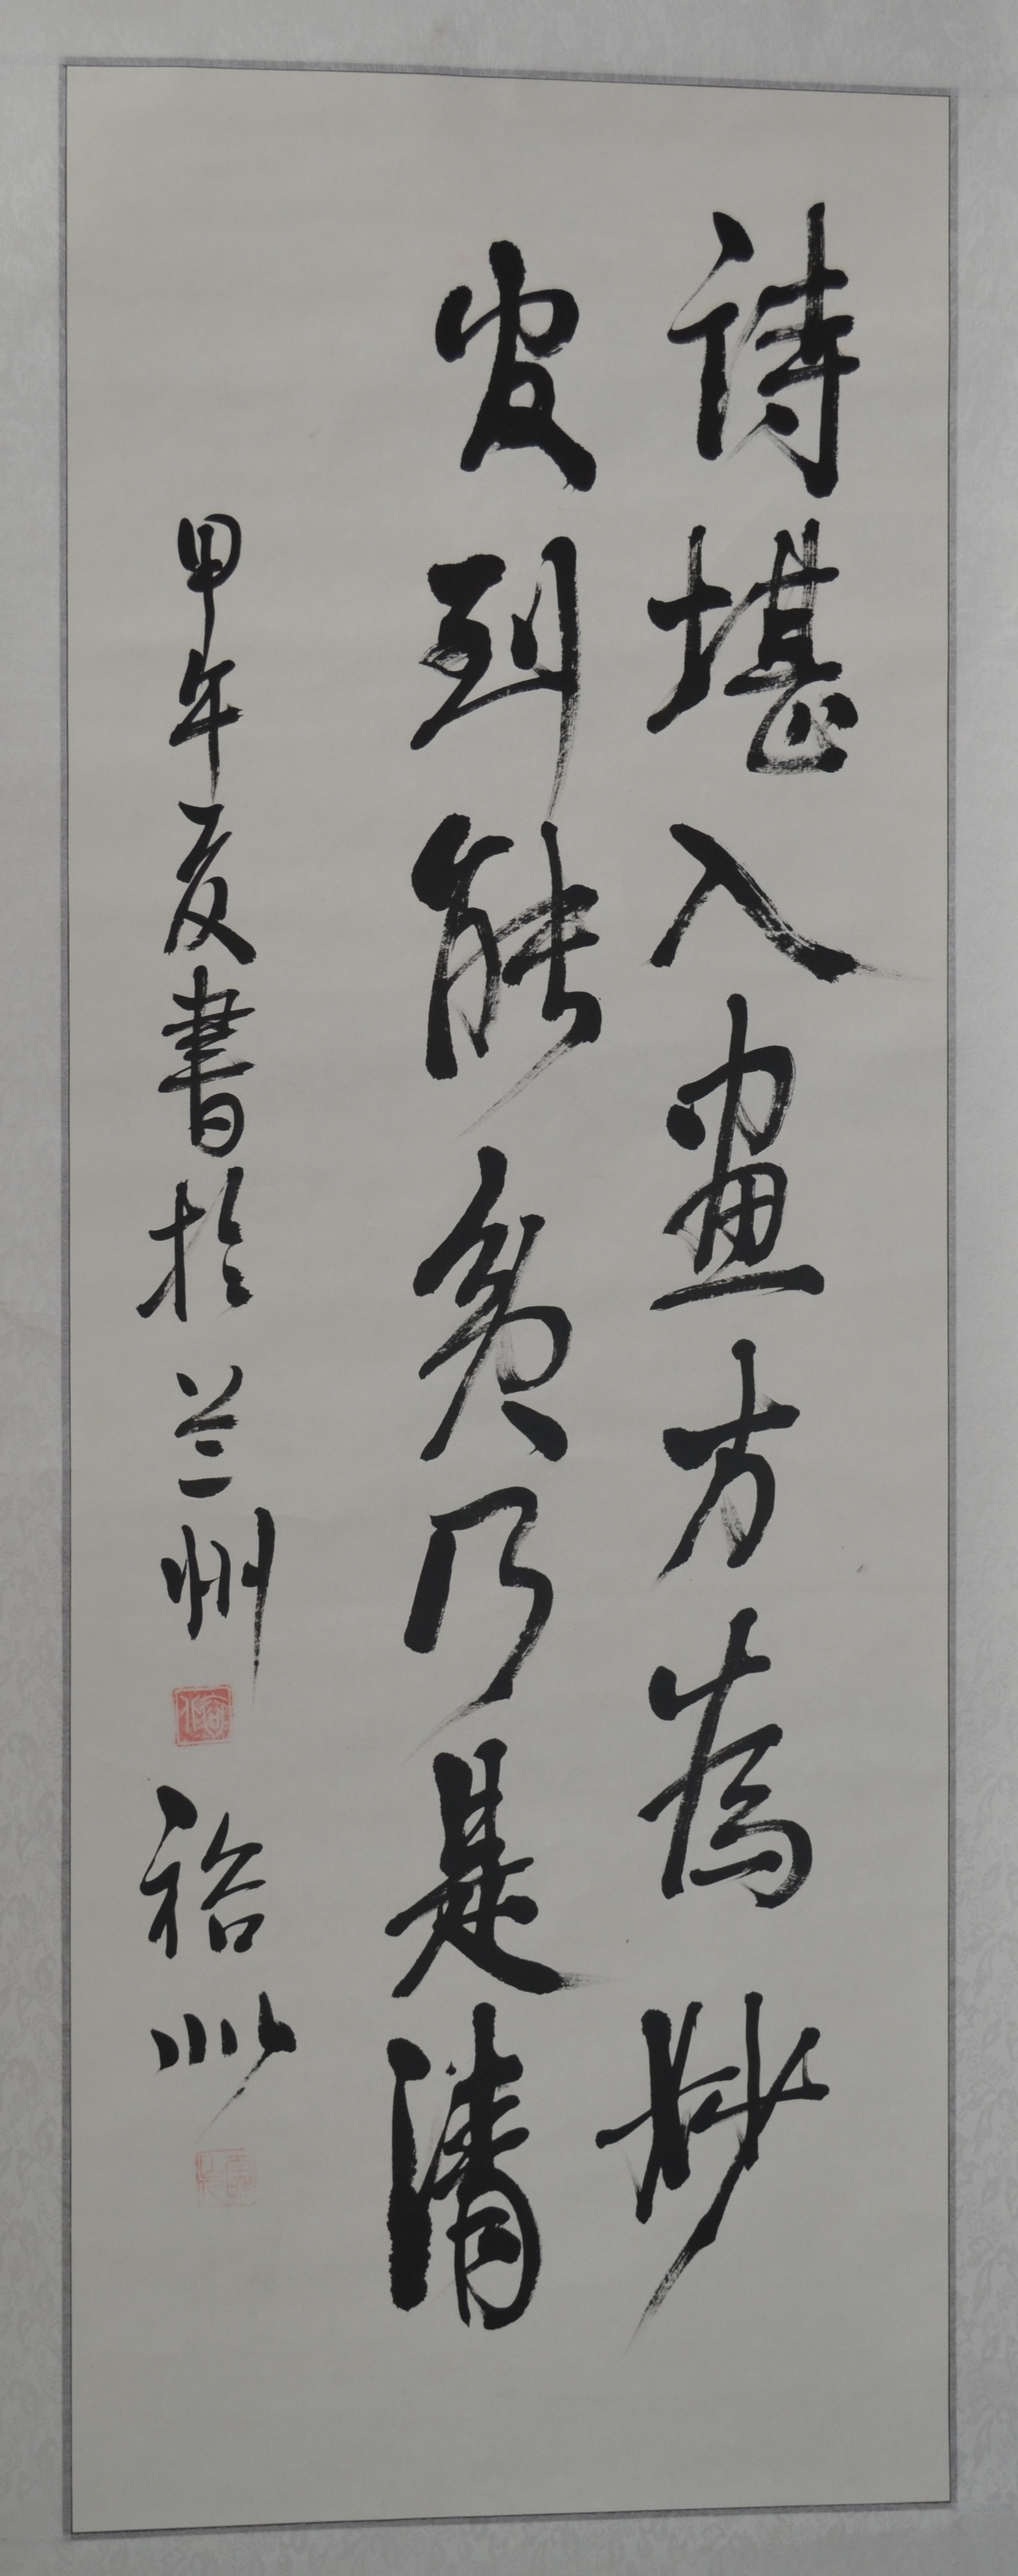 詩堪入畫方為妙
官到能貧乃是清
甲午夏書於兰州 裕